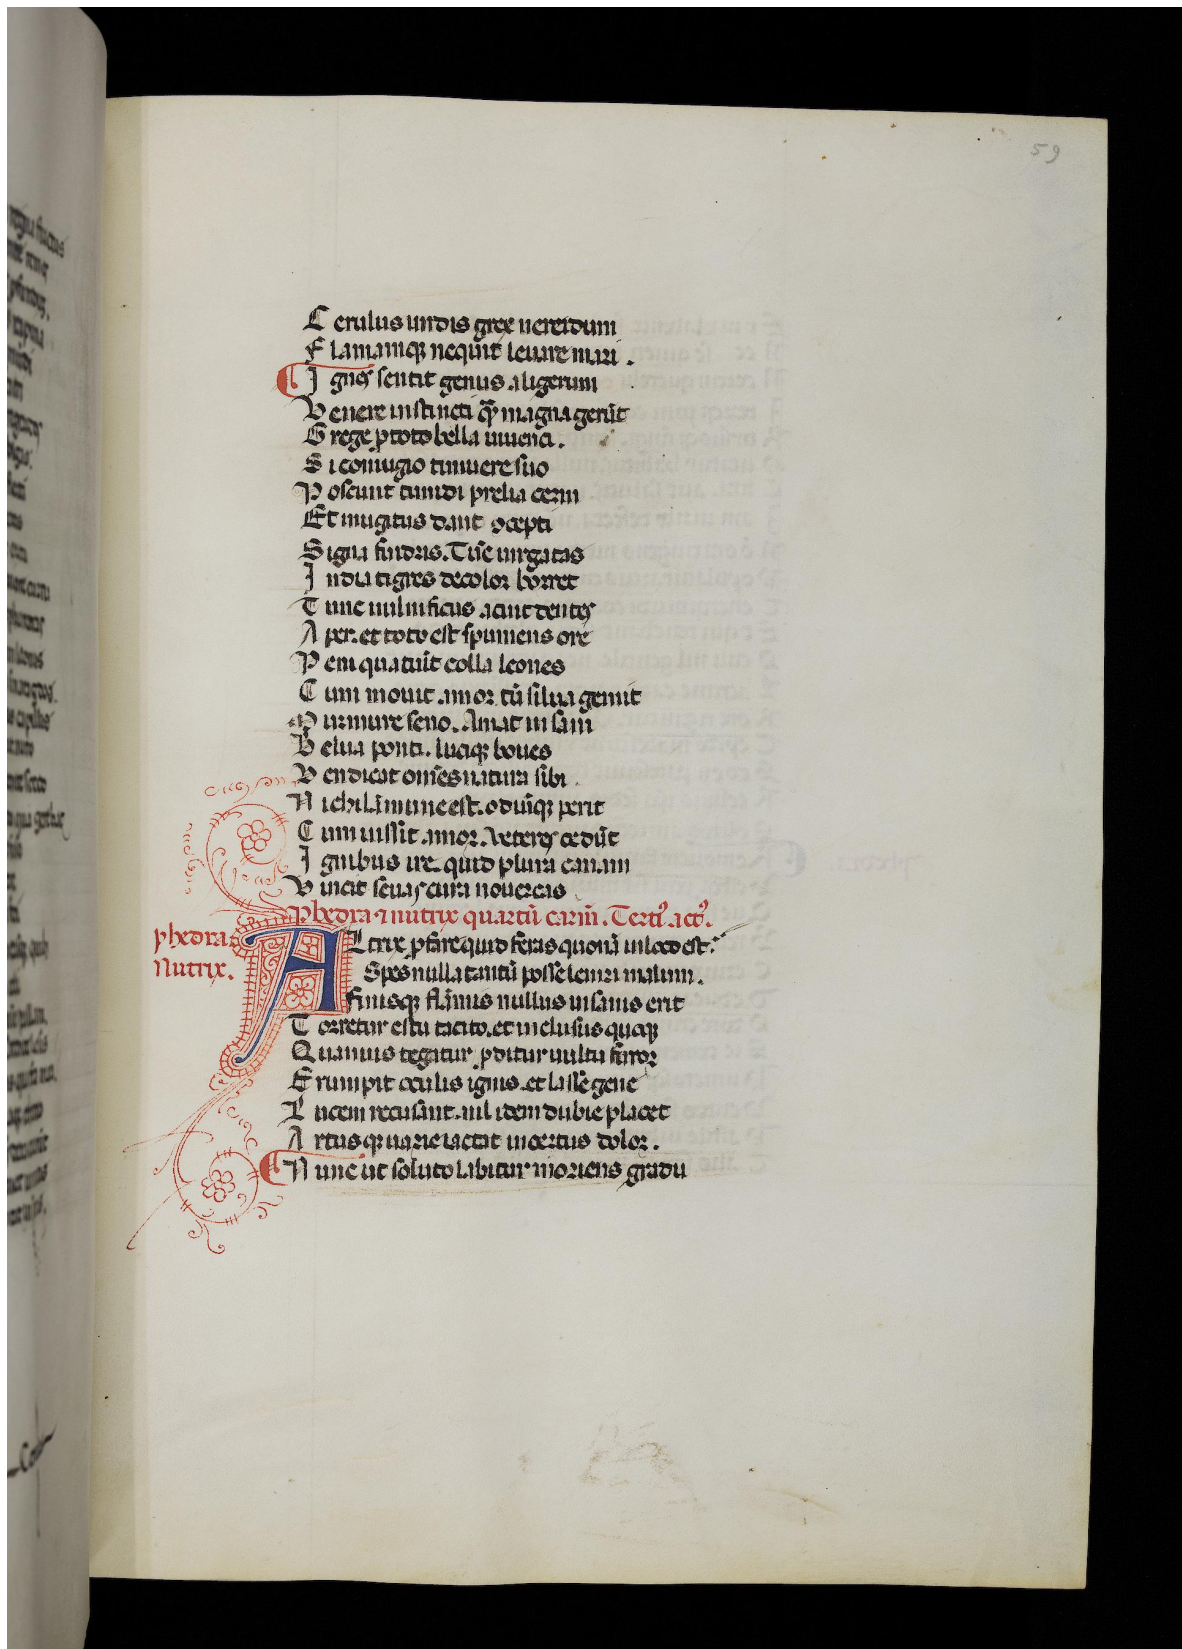 59
Cerulus undis grex nereidum
Flamamque nequit levare mari.
Ignes sentit genus aligerum
Venere instincti quam magna gerunt
Grege pro toto bella iuvenci.
Si coniugio timuere suo
Poscunt timidi prelia cerui
Et mugitus dant concepti
Signa furoris. Tunc virgatas
India tigres decolor horret
Tunc vulnificus acuit dentes
Aper. et toto est spumeus ore
Peni quatiunt colla leones
Cum movit amor. tum silva gemit
Murmure sevo. Amat insani
Belua ponti. lucique boves
Vendicat omnes natura sibi.
Nichil immune est. odiumque perit
Cum iussit amor. veteres cedunt
Ignibus ire. quid plura canam
Vincit sevas cura novercas
Phedra et nutrix quartum carmen. Tertius actus.
phedra
Nutrix.
Altrix profare quid feras quonam in loco est.
Spes nulla tantum posse leniri malum.
Finisque flammis nullus insanis erit
Torretur estu tacito. et inclusus quoque
Quamvis tegatur proditur vultu furor
Erumpit oculis ignis. et lasse gene
Lucem recusant. nil idem dubie placet
Artusque varie iactat incertus dolor.
Nunc ut soluto labitur moriens gradu